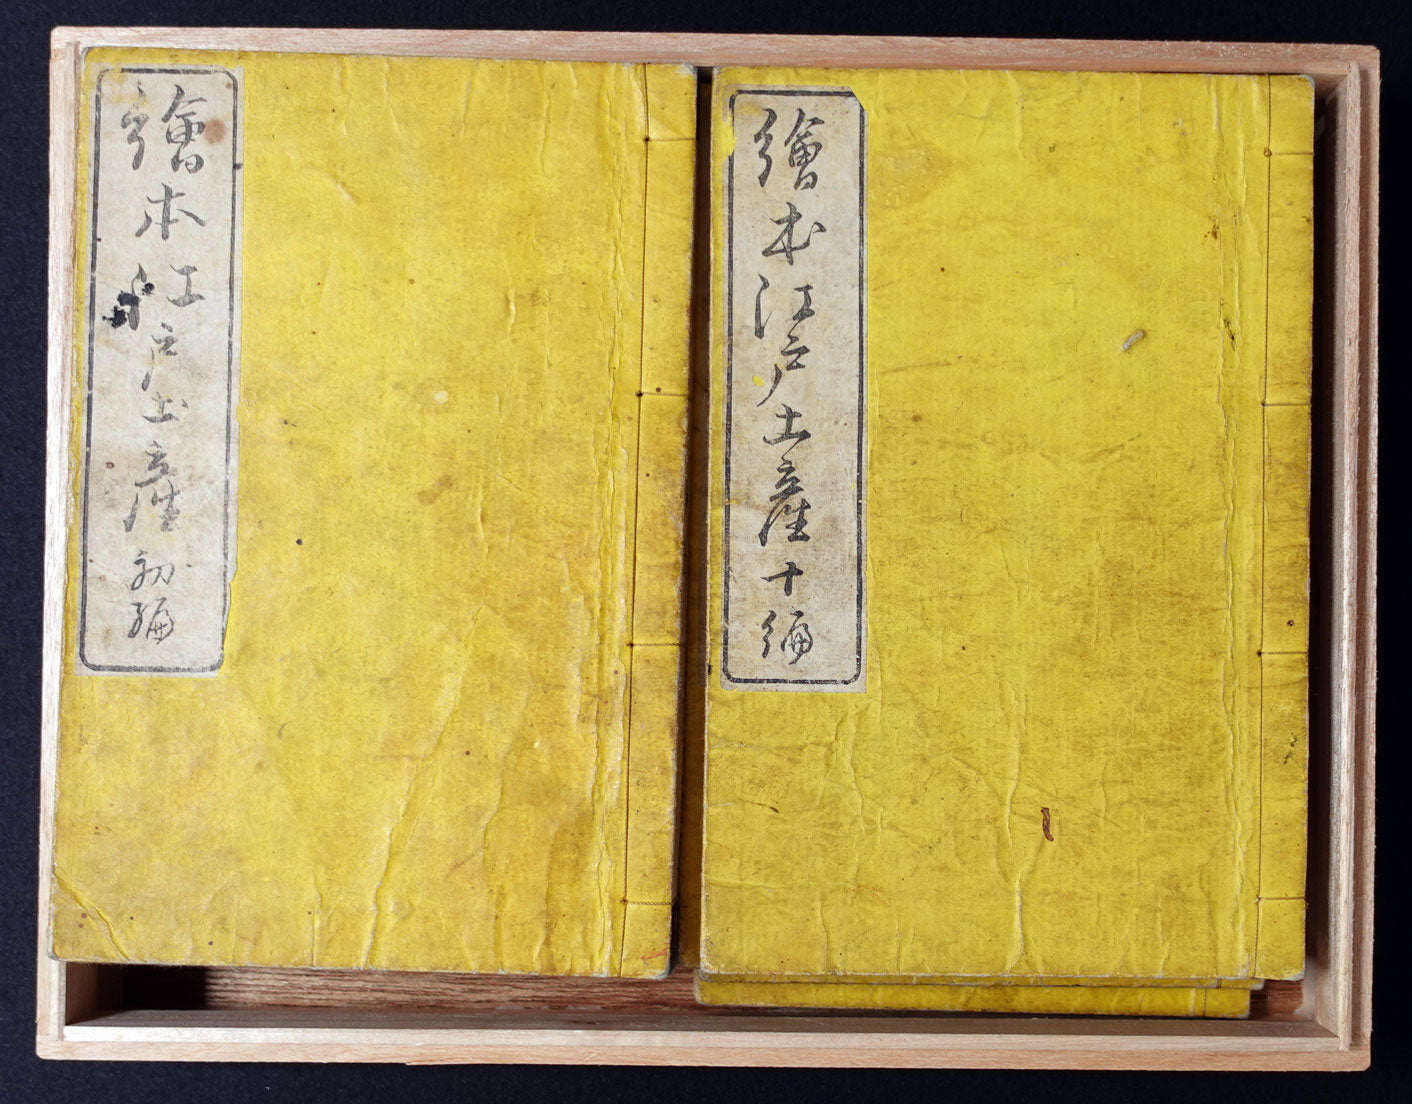 繪本江戸土産十編
繪本江戸土産初編